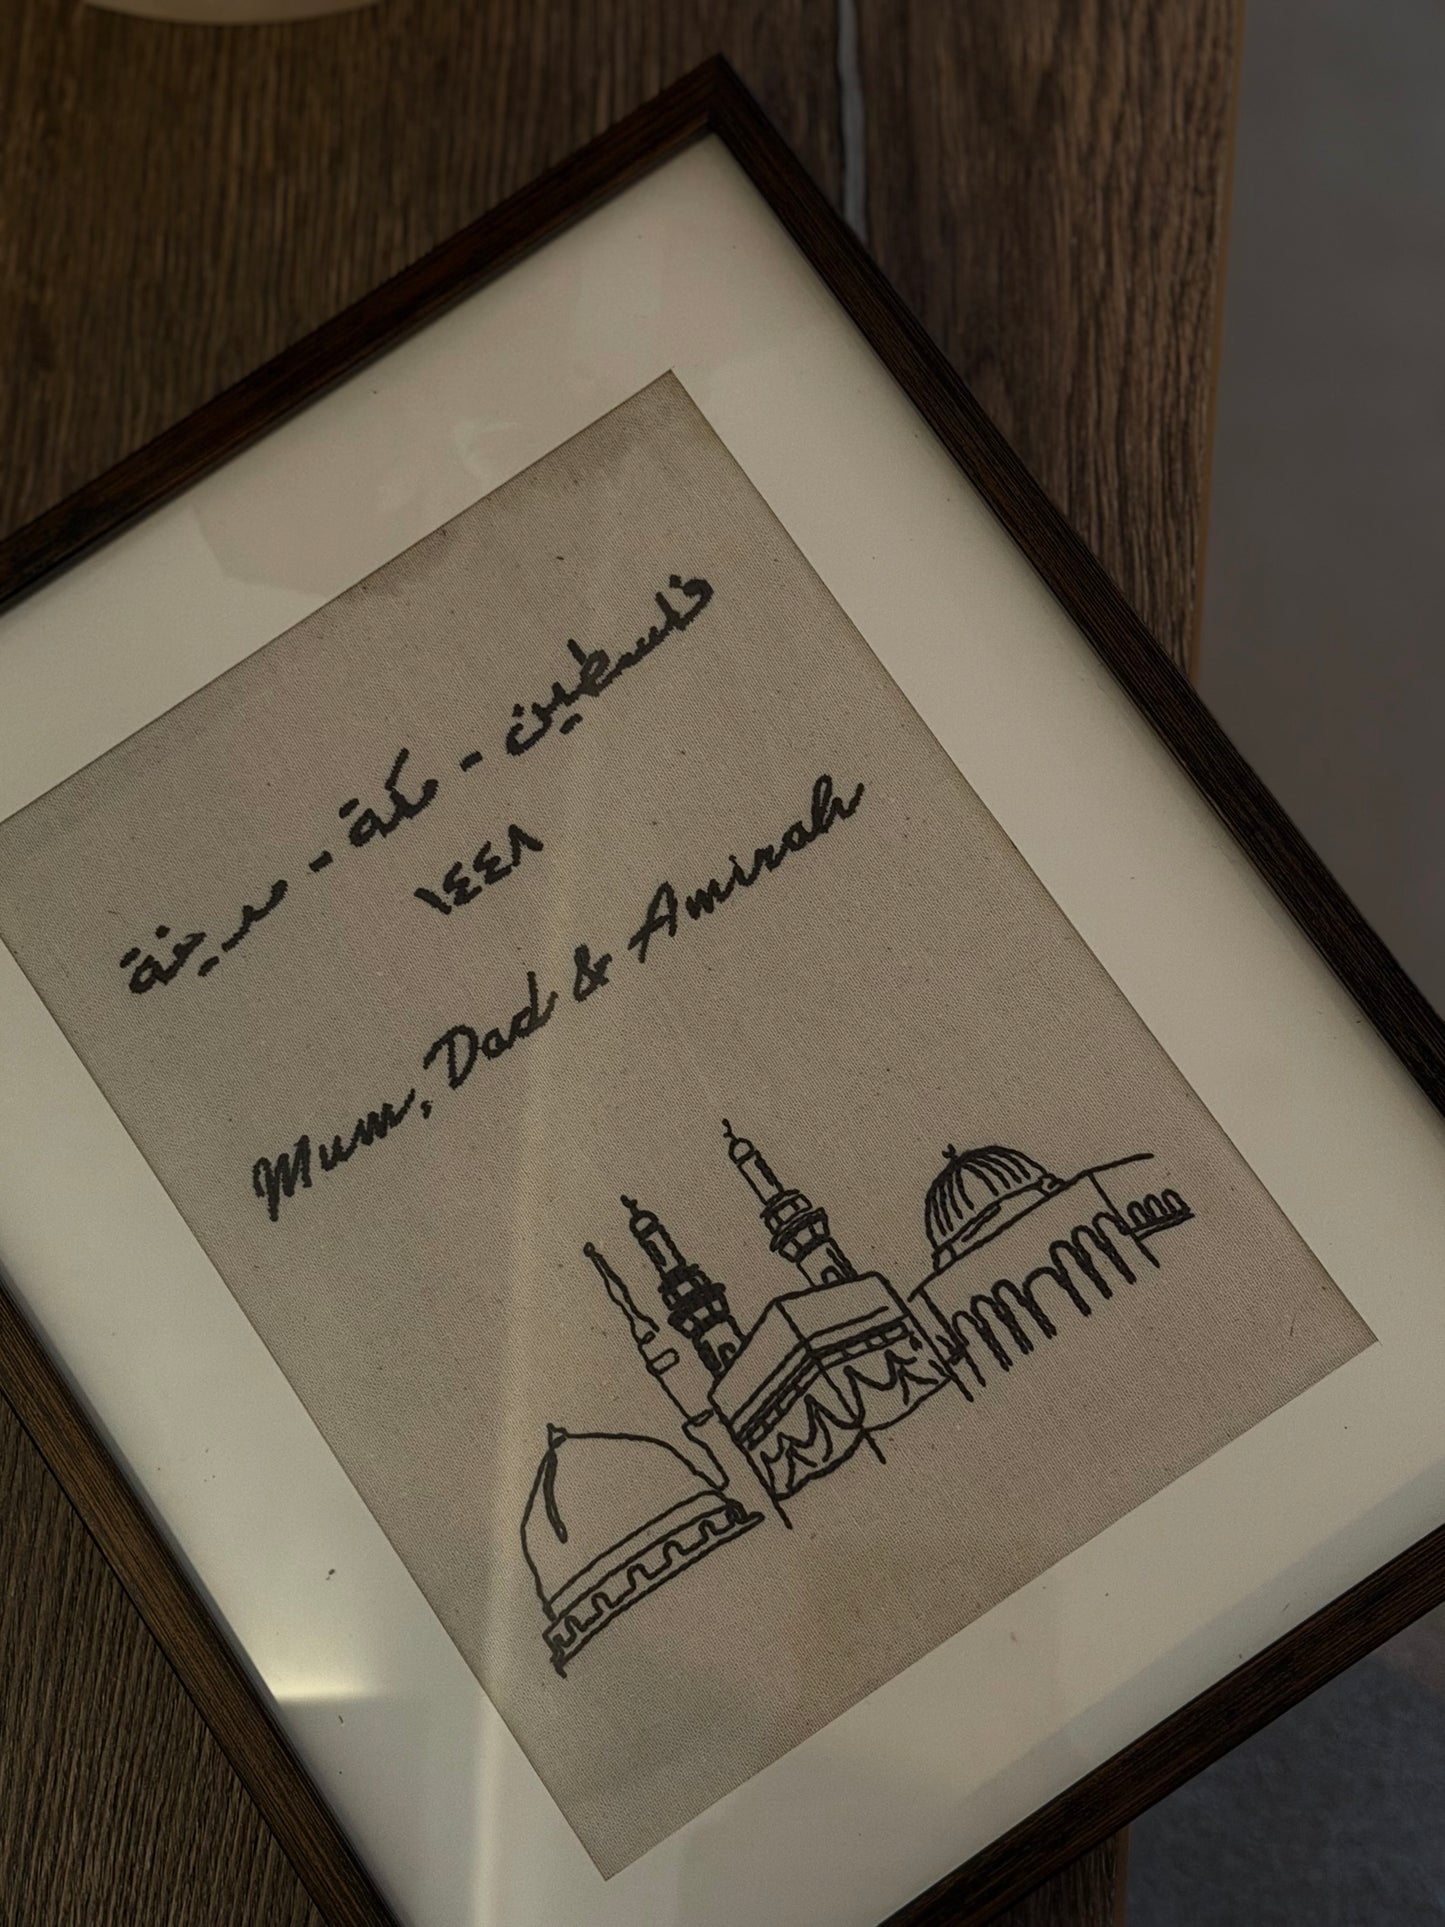 فلسطين - مكة - مدينة
١٤٤٨
Mum, Dad & Amirah